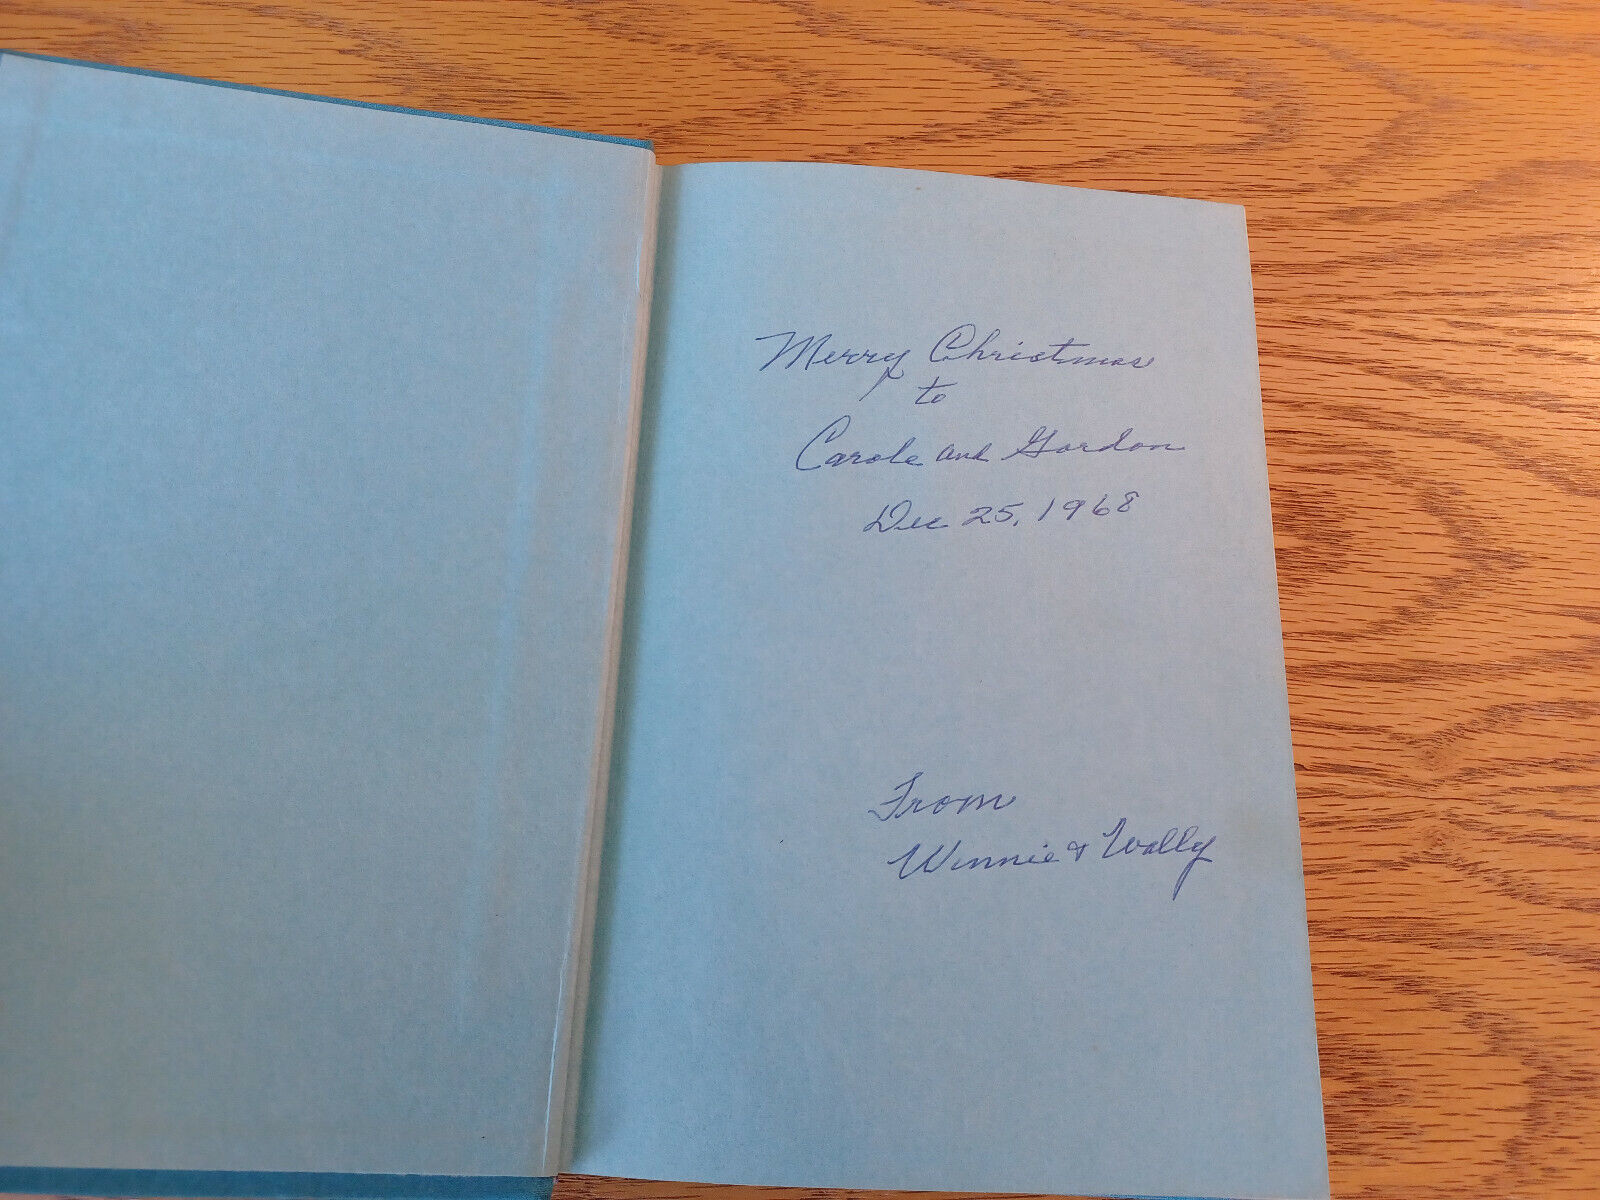 Merry Christmas
to
Carole and Gordon
Dec 25, 1968
From
Winnie & Wally